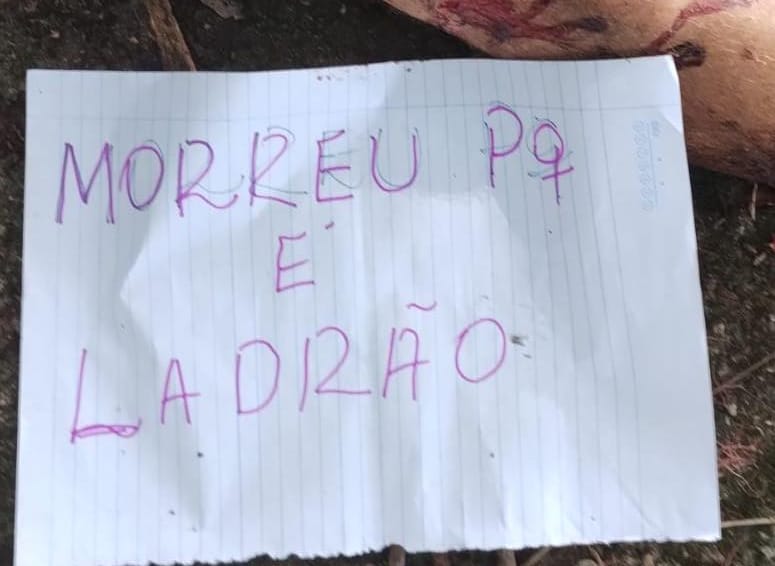 MORREU PQ
É
LADRÃO